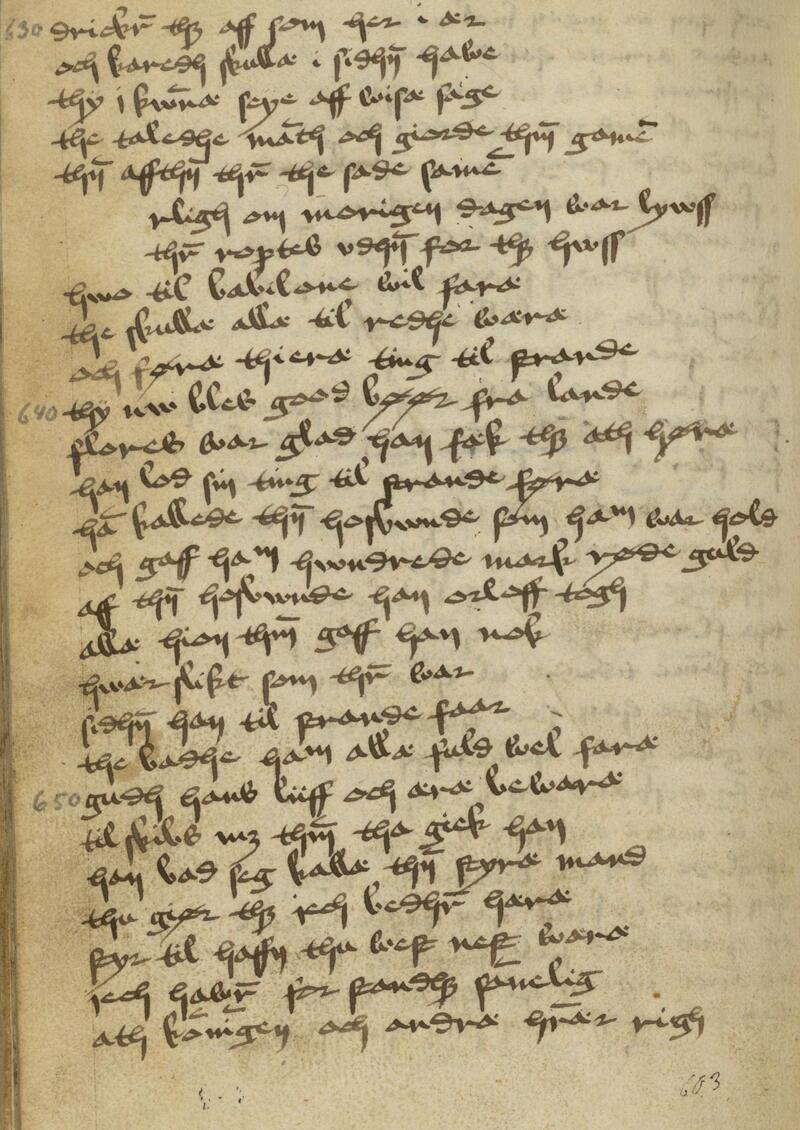 630 drickr̄ thꝫ aff som her i ær
och karedh skullæ i sidhn̄ hawe
thy i kwn̄æ seye aff wisæ sage
the taledhe māth och giorde thm̄ gamē
thn̄ affthn̄ thr̄ the sade samē
rligh om morigen dagen war lywss
thr̄ roptes vdhn̄ for thꝫ hwss
hwo til babilone wil faræ
the skullæ allæ til redhe wæræ
och føræ thieræ ting til strande
640 thy nw bles good bøør fra lande
flores war glad han fæk thꝫ ath høræ
han lod sin ting til strande føræ
hā kallede thn̄ hosbwnde som ham war hold
och gaff ham hwndrede mark røde guld
aff thn̄ hosbwnde han orloff togh
allæ hion thm̄ gaff han nok
hwær slikt som thr̄ war
sidhn̄ han til strande faar
the badhe ham allæ fuld wel faræ
650 gudh hans liiff och æræ bewaræ
til skibs mꝫ thm̄ tha giek han
han bad seg kallæ thn̄ styræ mand
thu giør thꝫ jech bedhr̄ hæræ
styr til haffn thu west nest wæræ
jech hawr̄ for standhꝫ sānelig
ath kōnīgen och andræ hr̄ær righ
603